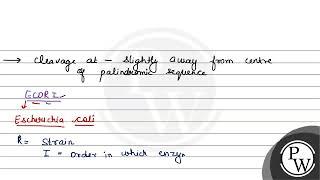 → Cleavage at - slightly away from centre
of palindromic sequence
ECORI
Escherichia coli
R = Strain
I = order in which enzy
PW